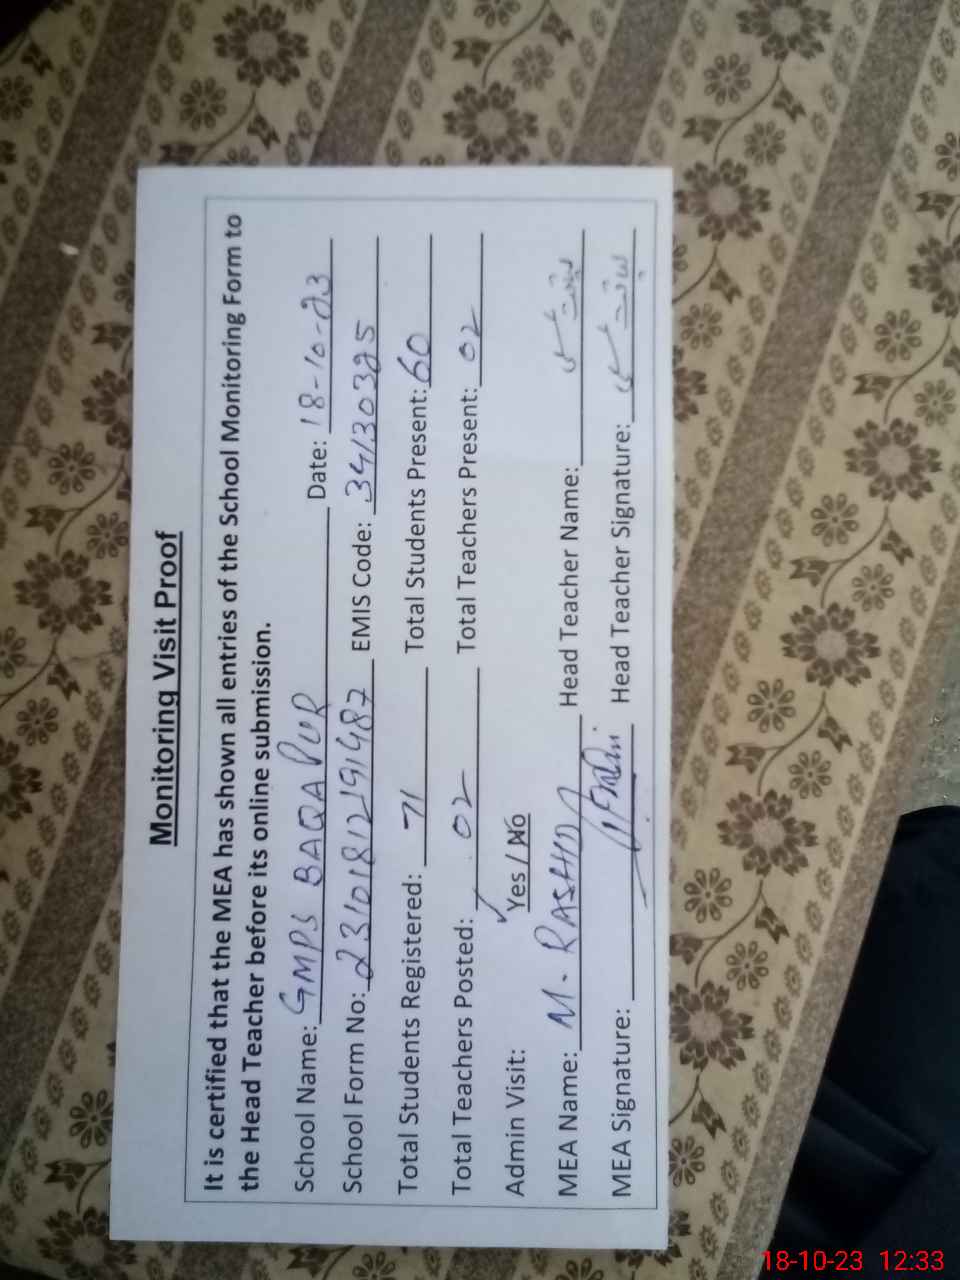 Monitoring Visit Proof
It is certified that the MEA has shown all entries of the School Monitoring Form to
the Head Teacher before its online submission.
School Name: GMPS BAQAPUR Date: 18-10-23
School Form No: 23101812191487 EMIS Code: 34130325
Total Students Registered: 71 Total Students Present: 60
Total Teachers Posted: 02 Total Teachers Present: 02
Admin Visit: Yes / No
MEA Name: M. RASHID Head Teacher Name:
MEA Signature: Head Teacher Signature:
18-10-23 12:33